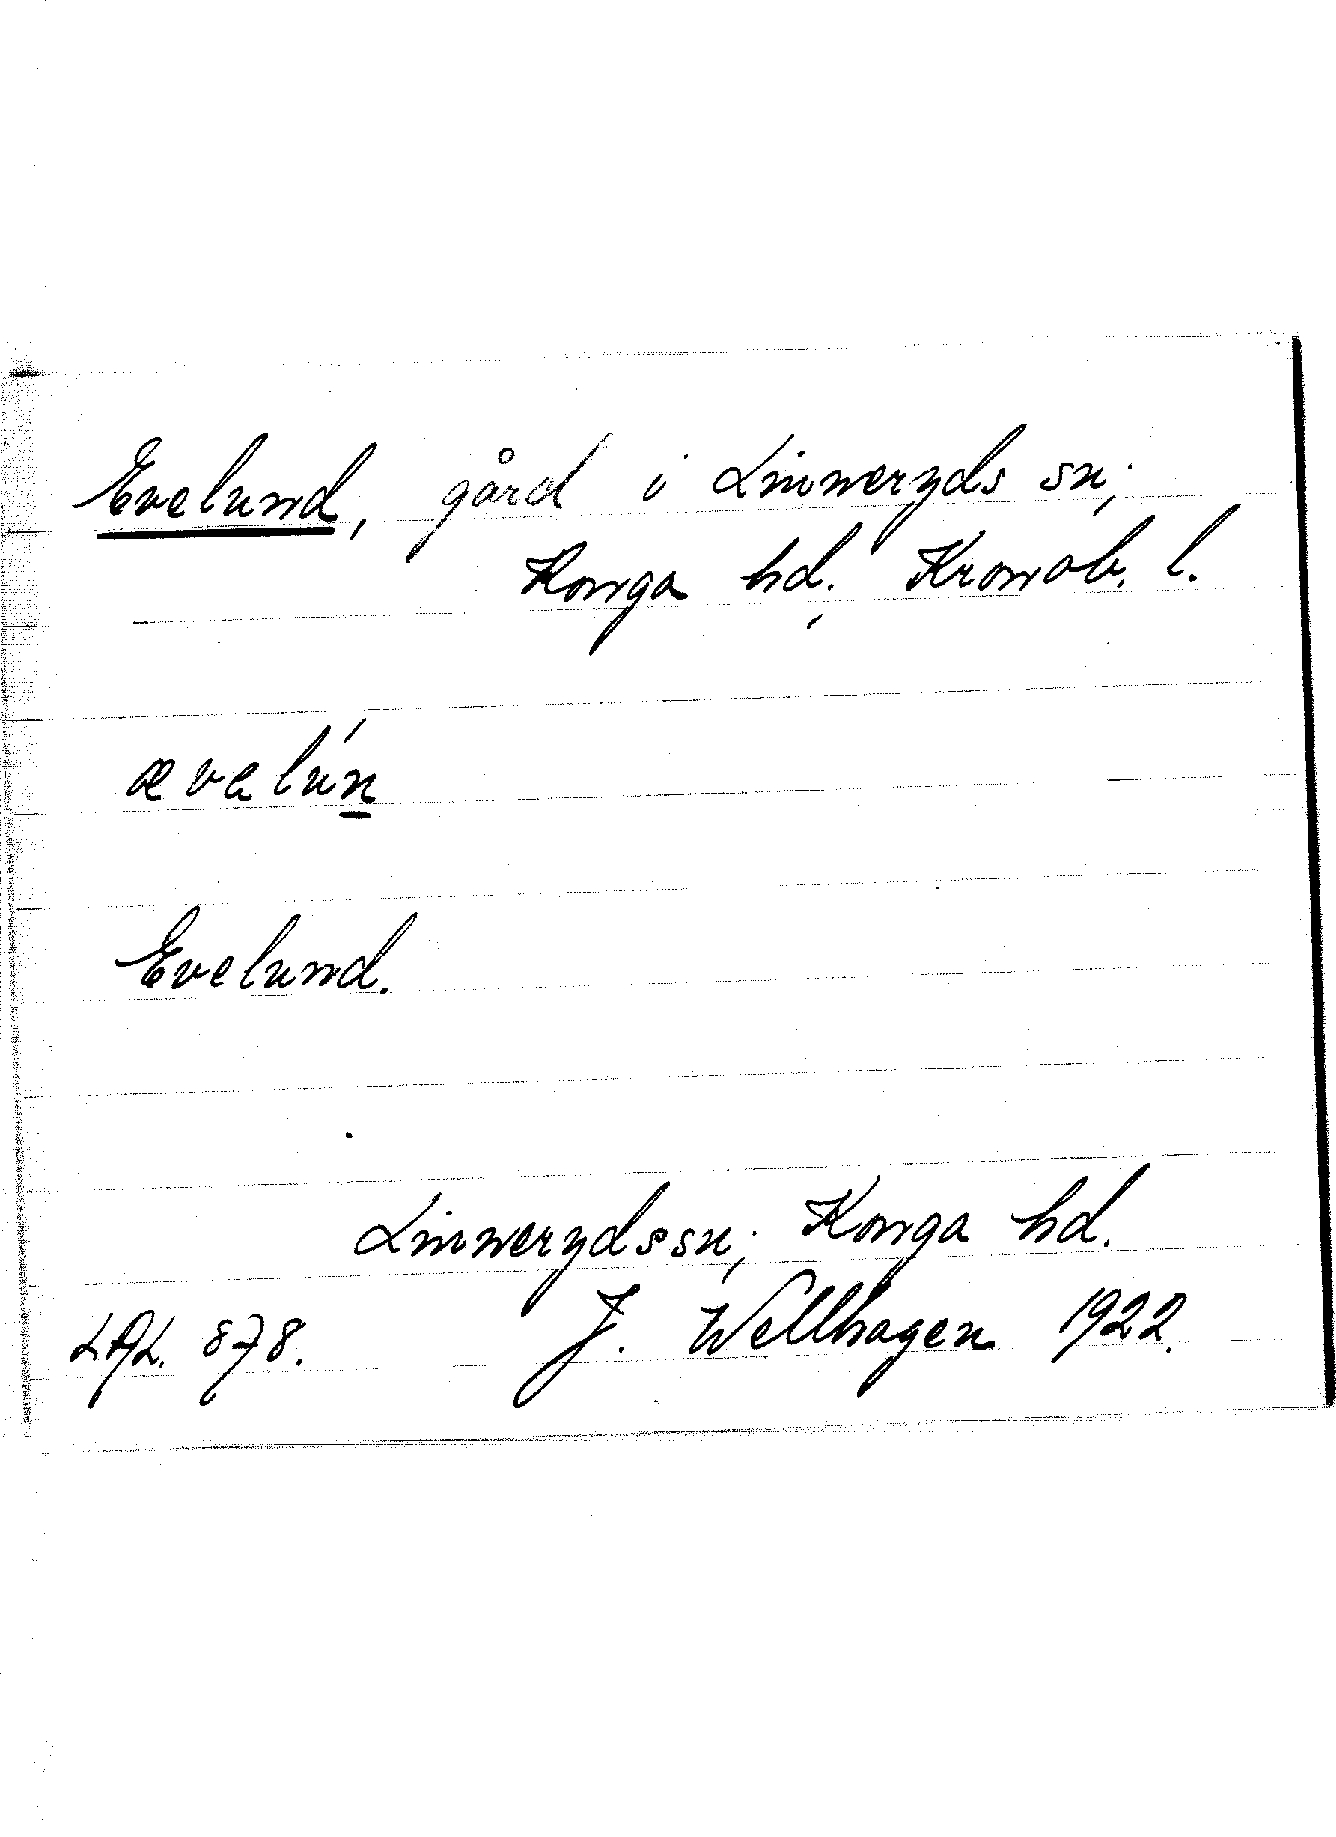 Evelund, gård i Linneryds sn,
Konga hd, Kronob. l.
ævelún
Evelund.
Linneryds sn, Konga hd.
LAL. 878. J. Wellhagen 1922.